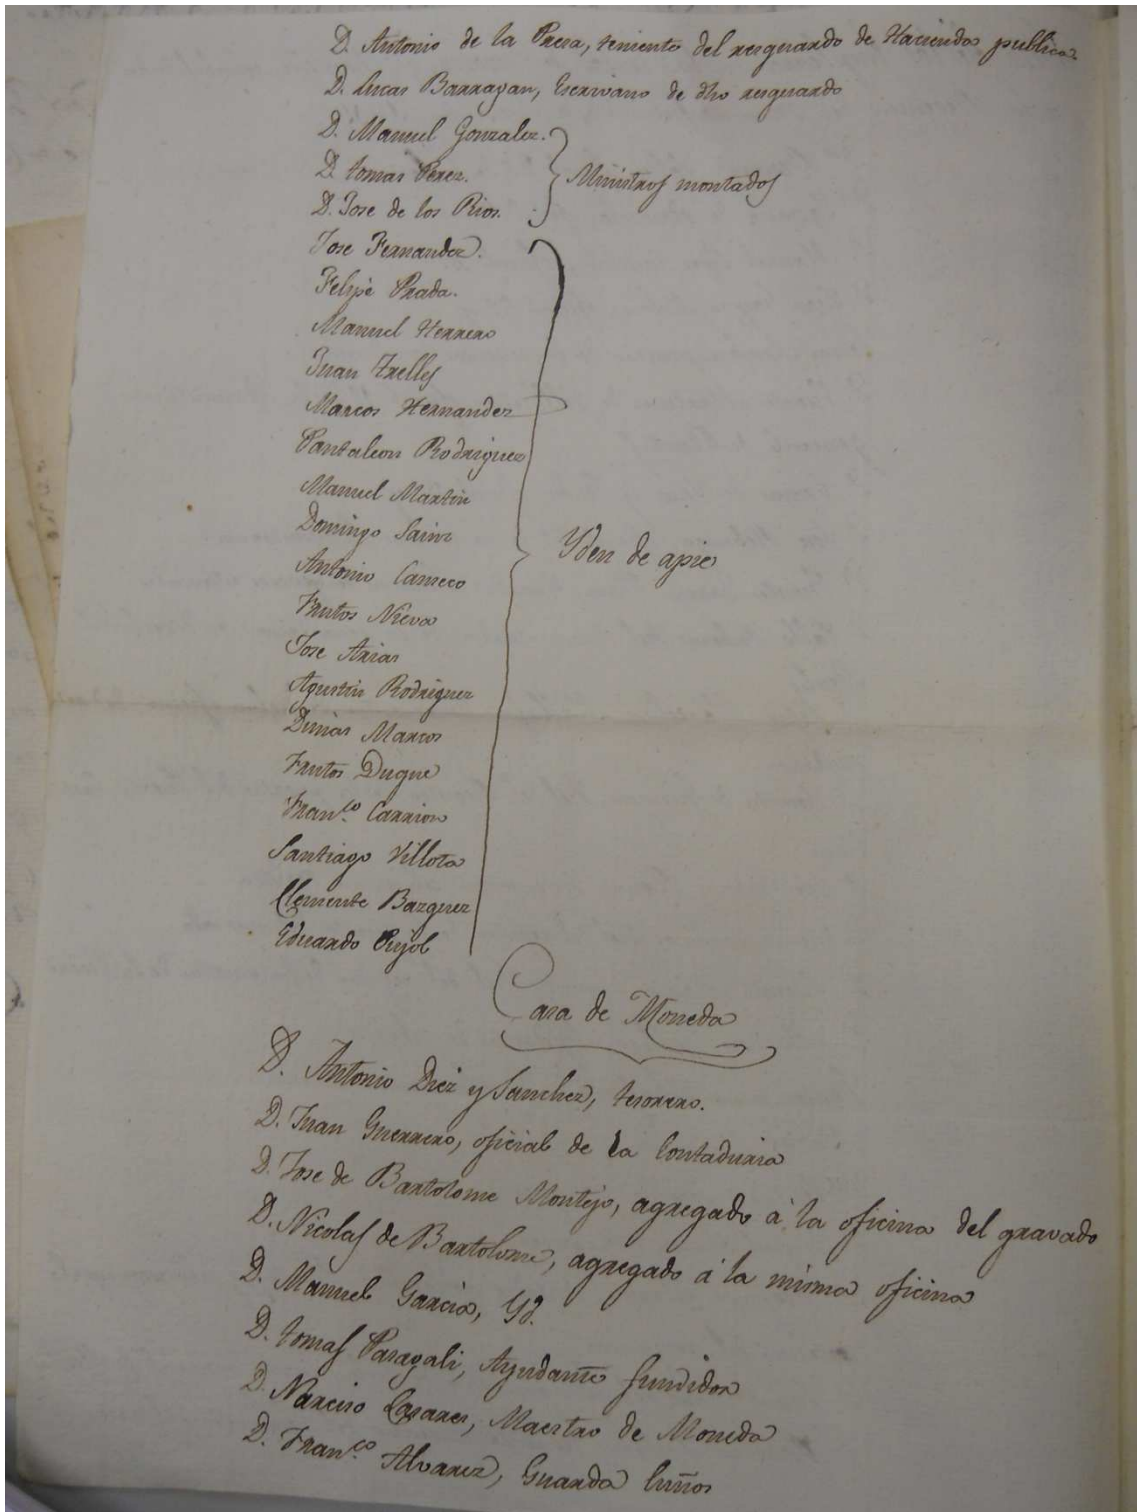 D. Antonio de la Presa, teniente del resguardo de Hacienda publica
D. Lucas Barragan, Escrivano de dho resguardo
D. Manuel Gonzalez.
D. tomas Perez.
D. Jose de los Rios.
Ministros montados
Jose Fernandez.
Felipe Prada.
Manuel Herrero
Juan Trelles
Marcos Hernandez
Pantaleon Rodriguez
Manuel Martin
Domingo Sainz
Antonio Cameco
Frutos Nieva
Jose Arias
Agustin Rodriguez
Dimas Marcos
Frutos Duque
Franco. Carrion
Santiago Villota
Clemente Bazquez
Eduardo Pujol
Yden de apie
Casa de Moneda
D. Antonio Diez y Sanchez, tesorero.
D. Juan Guerrero, oficial de la Contaduria
D. Jose de Bartolome Montejo, agregado á la oficina del gravado
D. Nicolas de Bartolome, agregado á la misma oficina
D. Manuel Garcia, Yd.
D. tomas Pasagali, Ayudante fundidor
D. Narciso Casares, Maestro de Moneda
D. Franco. Alvarez, Guarda Cuños